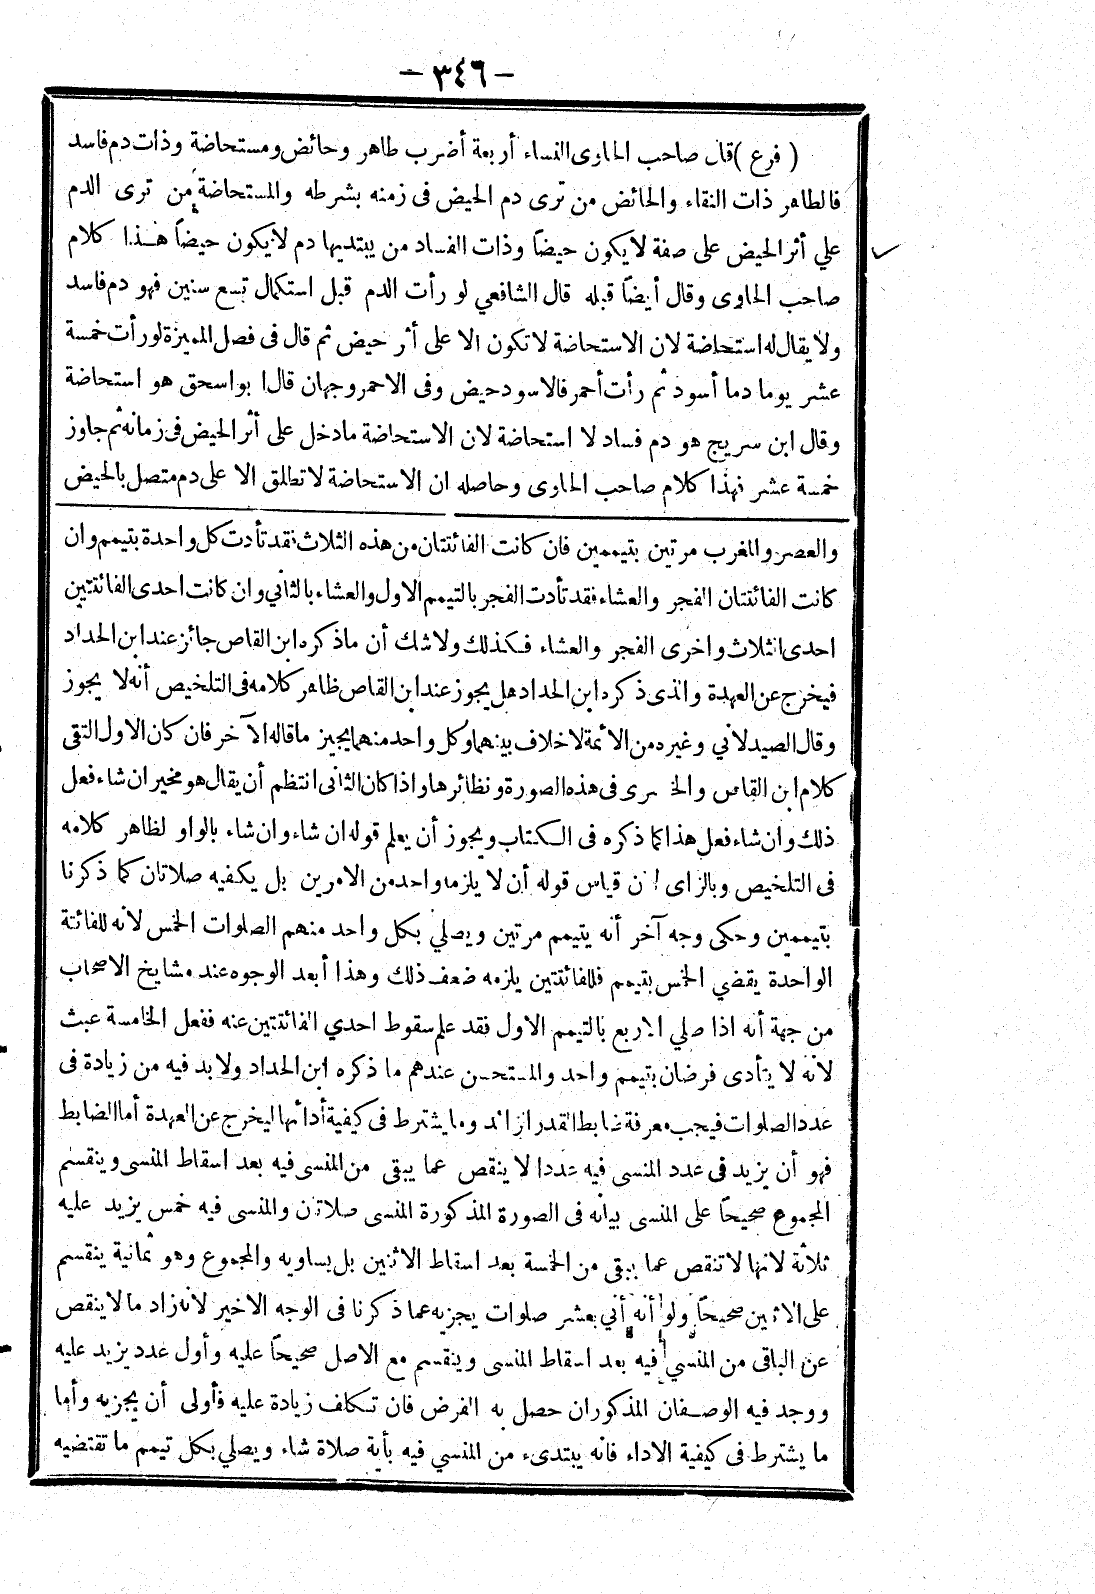 -٣٤٦-
( فرع )قال صاحب الحاوى النساء أربعة أضرب طاهر وحائض ومستحاضة وذات دم فاسد
فالطاهر ذات النقاء والحائض من ترى دم الحيض فى زمنه بشرطه والمستحاضة من ترى الدم
علي أثر الحيض على صفة لا يكون حيضاً وذات الفساد من يبتديها دم لا يكون حيضاً هذا كلام
صاحب الحاوى وقال أيضاً قبله قال الشافعي لو رأت الدم قبل استكمال تسع سنين فهو دم فاسد
ولا يقال له استحاضة لان الاستحاضة لا تكون الا على أثر حيض ثم قال فى فصل المميزة لو رأت خمسة
عشر يوما دما أسود ثم رأت أحمر فالاسود حيض وفى الاحمر وجهان قال ابو اسحق هو استحاضة
وقال ابن سريج هو دم فساد لا استحاضة لان الاستحاضة ما دخل على أثر الحيض فى زمانه ثم جاوز
خمسة عشر فهذا كلام صاحب الحاوى وحاصله ان الاستحاضة لا تطلق الا على دم متصل بالحيض
والعصر والمغرب مرتين بتيممين فان كانت الفائتتان من هذه الثلاث فقد تأدت كل واحدة بتيمم وان
كانت الفائتتان الفجر والعشاء فقد تأدت الفجر بالتيمم الاول والعشاء بالثاني وان كانت احدى الفائتتين
احدى الثلاث واخرى الفجر والعشاء فكذلك ولا شك أن ما ذكره ابن القاص جائز عند ابن الحداد
فيخرج عن العهدة والذى ذكره ابن الحداد هل يجوز عند ابن القاص ظاهر كلامه فى التلخيص أنه لا يجوز
وقال الصيدلاني وغيره من الائمة لا خلاف بينهما وكل واحد منهما يجيز ما قاله الآخر فان كان الاول التقى
كلام ابن القاص و فى هذه الصورة ونظائرها واذا كان الثانى انتظم أن يقال هو مخير ان شاء فعل
ذلك وان شاء فعل هذا كما ذكره فى الكتاب ويجوز أن يعلم قوله ان شاء وان شاء بالواو لظاهر كلامه
فى التلخيص وبالزاى لان قياس قوله أن لا يلزمه واحد من الامرين بل يكفيه صلاتان كما ذكرنا
بتيممين وحكى وجه آخر أنه يتيمم مرتين ويصلي بكل واحد منهم الصلوات الخمس لانه للفائتة
الواحدة يقضي الخمس بتيمم فللفائتتين يلزمه ضعف ذلك وهذا أبعد الوجوه عند مشايخ الاصحاب
من جهة أنه اذا صلي الاربع بالتيمم الاول فقد علم سقوط احدي الفائتتين عنه ففعل الخامسة عبث
لانه لا يتأدى فرضان بتيمم واحد والمستحسن عندهم ما ذكره ابن الحداد ولا بد فيه من زيادة فى
عدد الصلوات فيجب معرفة ضابط القدر الزائد وما يشترط فى كيفية أدائها ليخرج عن العهدة أما الضابط
فهو أن يزيد فى عدد المنسى فيه عددا لا ينقص عما يبقى من المنسى فيه بعد اسقاط المنسى وينقسم
المجموع صحيحًا على المنسى بيانه فى الصورة المذكورة المنسى صلاتان والمنسى فيه خمس يزيد عليه
ثلاثة لانها لا تنقص عما يبقى من الخمسة بعد اسقاط الاثنين بل يساويه والمجموع وهو ثمانية ينقسم
على الاثنين صحيحًا ولو أنه أتي بعشر صلوات يجزيه عما ذكرنا فى الوجه الاخير لانه زاد ما لا ينقص
عن الباقى من المنسي فيه بعد اسقاط المنسى وينقسم مع الاصل صحيحًا عليه وأول عدد يزيد عليه
ووجد فيه الوصفان المذكوران حصل به الفرض فان تكلف زيادة عليه فأولى أن يجزيه وأما
ما يشترط فى كيفية الاداء فانه يبتدىء من المنسي فيه بأية صلاة شاء ويصلي بكل تيمم ما تقتضيه